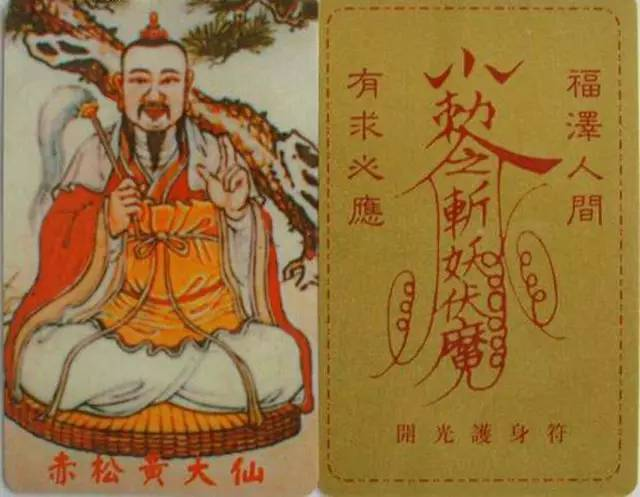 赤松黃大仙
福澤人間
小勅令斬妖伏魔
有求必應
開光護身符